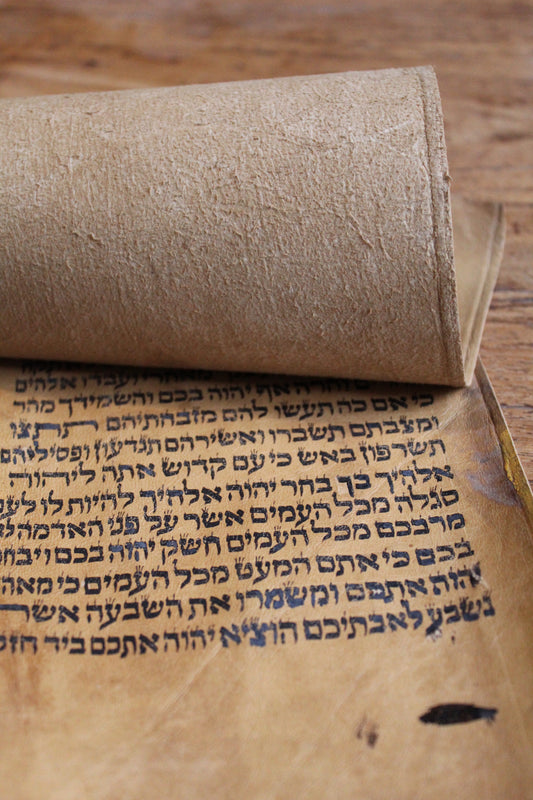 ועבדו אלהים
וחרה אף יהוה בכם והשמידך מהר
כי אם כה תעשו להם מזבחתיהם תתצו
ומצבתם תשברו ואשירהם תגדעון ופסיליהם
תשרפון באש כי עם קדוש אתה ליהוה
אלהיך בך בחר יהוה אלהיך להיות לו
סגלה מכל העמים אשר על פני האדמה לא
מרבכם מכל העמים חשק יהוה בכם ויבח
בכם כי אתם המעט מכל העמים כי מאה
יהוה אתכם ומשמרו את השבעה אשר
נשבע לאבתיכם הוציא יהוה אתכם ביד חזק